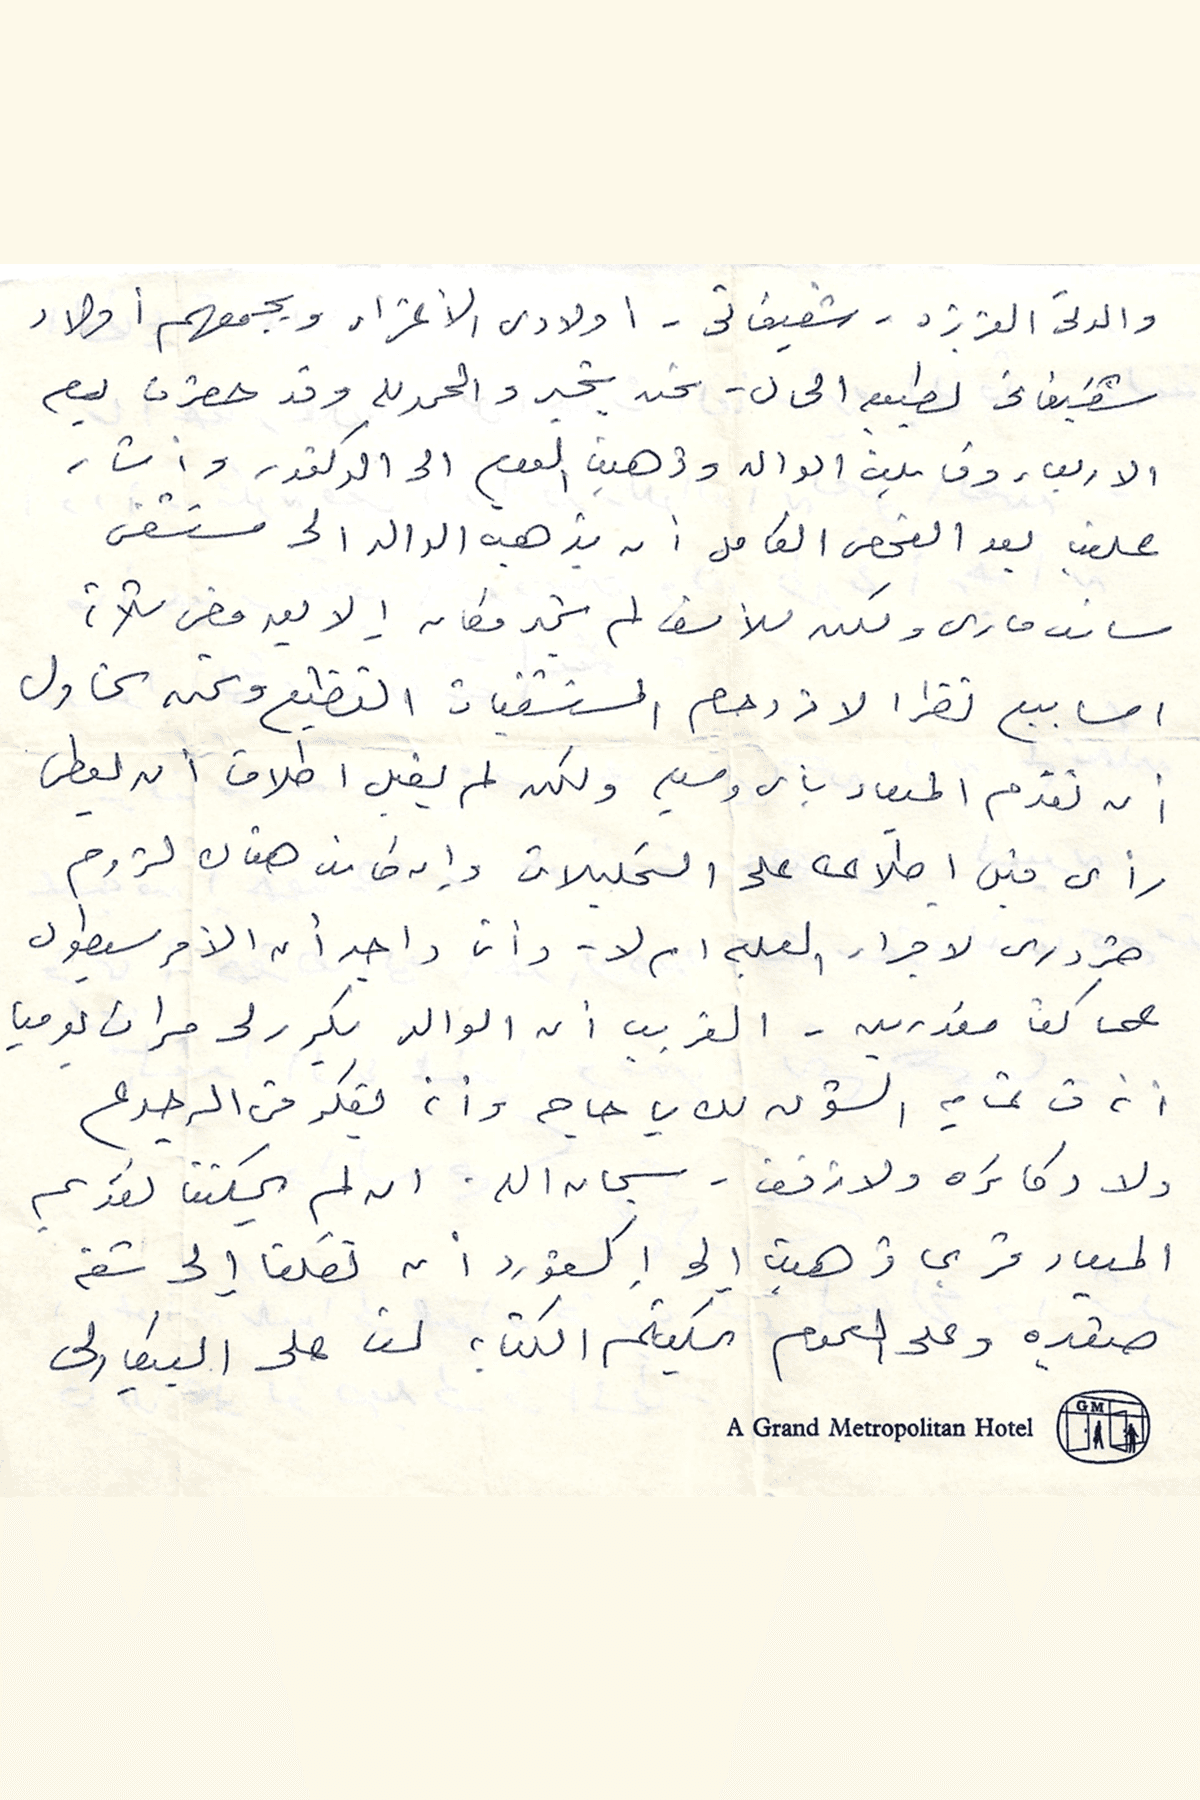 والدتي العزيزة - شقيقاتي - اولادى الأعزاء ويجمعهم أولاد
شقيقاتى لطبيعه الحال - نحن بخير والحمد لله وقد حضرت يوم
الاربعاء وقابلت الوالد وذهبت اليوم الى الدكتور وأشار
علينا بعد الفحص الكامل أن يذهب الوالد الى مستشفى
سانت مارى ولكن للأسف لم نجد مكان إلا بعد مضى ثلاثة
اسابيع نظرا لازدحام المستشفيات الفظيع ونحن نحاول
أن نقدم الميعاد بأى وسيله ولكن لم يقبل اطلاقا أن يعطى
رأى قبل اطلاعه على التحليلات وإن كانت هناك لزوم
ضرورى لاجراء العمليه ام لا - وأنا واجد أن الأمر سيطول
عما كنا مقدرين - الغريب أن الوالد يكرر لى مرات يوميا
أنه فى غايه الشوق للدياحاجه وأنه يفكر فى الرجوع
ولا دكاتره ولا زفت - سبحان الله . ان لم يمكننا تقديم
الميعاد قربا ذهبت إلى إكسفورد أن نقلنا إلى شقه
صغيره وعلى العموم يمكنكم الكتابه لنا على البيكاديلى
A Grand Metropolitan Hotel
GM